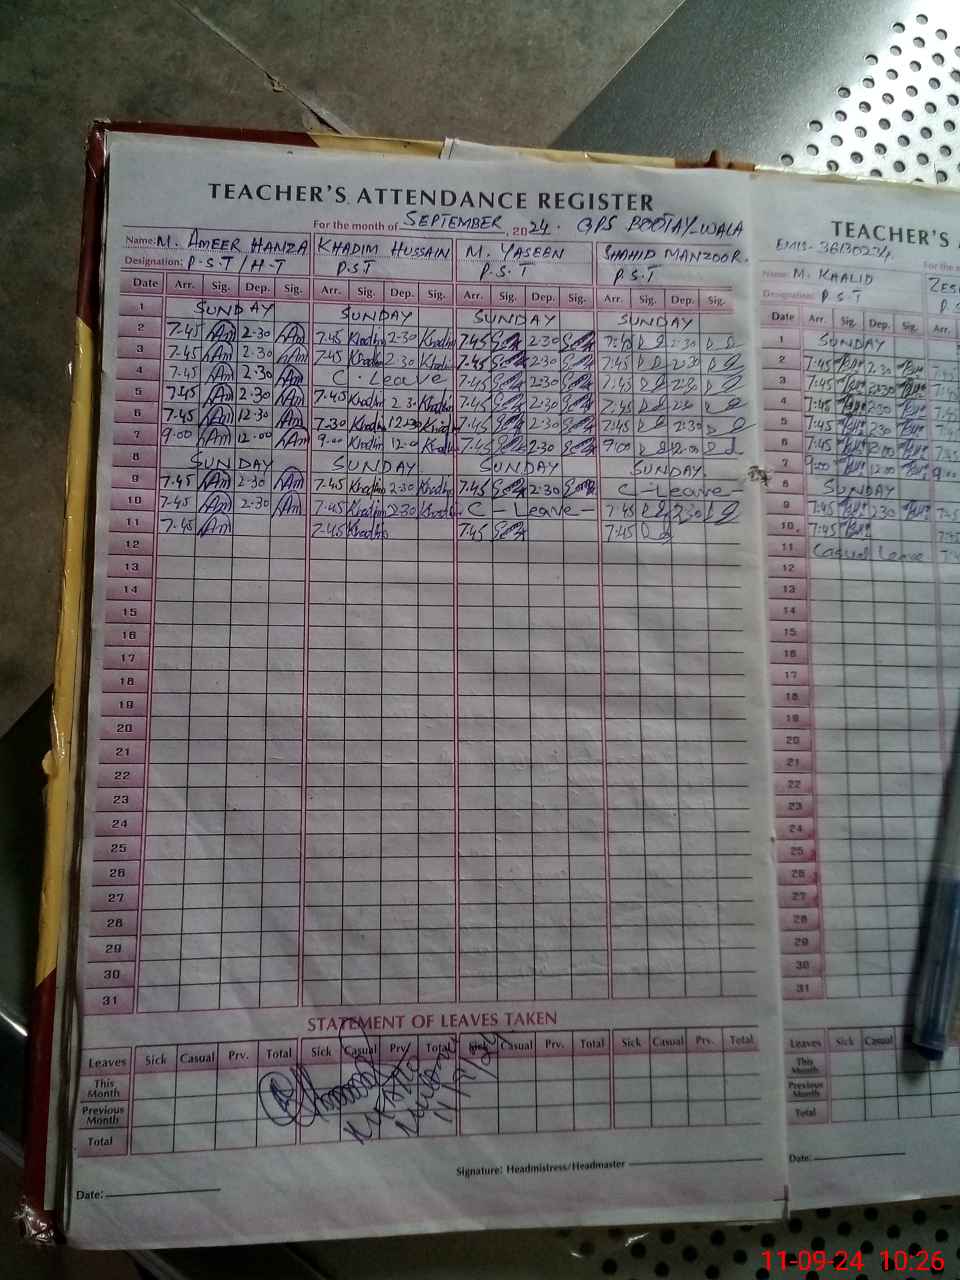 TEACHER'S ATTENDANCE REGISTER
For the month of SEPTEMBER, 2024. GPS BOOTAY-WALA
Name: M. AMEER HAMZA KHADIM HUSSAIN M. YASEEN SHAHID MANZOOR.
Designation: P.S.T / H.T P.S.T P.S.T P.S.T
Date Arr. Sig. Dep. Sig. Arr. Sig. Dep. Sig. Arr. Sig. Dep. Sig. Arr. Sig. Dep. Sig.
1 SUNDAY SUNDAY SUNDAY SUNDAY
2 7-45 2-30 7.45 Khadim 2-30 Khadim 7.45 2.30 2.30
3 7-45 2-30 7-45 Khadim 2.30 Khadim 7.45 2.30 7.45 2.30
4 7-45 2-30 C. Leave 7.45 2.30 7.45 2.30
5 7.45 2-30 7.45 Khadim 2.30 Khadim 7.45 2.30 7.45 2.30
6 7.45 12-30 7-30 Khadim 12-30 Khadim 7.45 2.30 7.45 2.30
7 9-00 12-00 9-00 Khadim 12-0 Khadim 7.45 2.30 9.00 12.00
8 SUNDAY SUNDAY SUNDAY SUNDAY
9 7.45 2-30 7.45 Khadim 2-30 Khadim 7.45 2.30 C-Leave-
10 7-45 2-30 7-45 Khadim 2.30 Khadim C - Leave - 7.45 2.30
11 7-45 7-45 Khadim 7.45 7.45
12
13
14
15
16
17
18
19
20
21
22
23
24
25
26
27
28
29
30
31
STATEMENT OF LEAVES TAKEN
Leaves Sick Casual Prv. Total Sick Casual Prv. Total Sick Casual Prv. Total Sick Casual Prv. Total
This Month
Previous Month
Total
11/9/24
Signature: Headmistress/Headmaster
Date:
TEACHER'S
EMIS-36130234
Name: M. KHALID
Designation: P.S.T
Date Arr. Sig. Dep. Sig. Arr.
1 SUNDAY
2 7.45 2.30
3 7.45 2.30
4 7.45 2.30
5 7.45 2.30
6 7.45
7 9.00 12.00
8 SUNDAY
9 7.45 2.30
10 7.45
11 Casual Leave
12
13
14
15
16
17
18
19
20
21
22
23
24
25
26
27
28
29
30
31
Leaves Sick Casual
This Month
Previous Month
Total
Date:
11-09-24 10:26